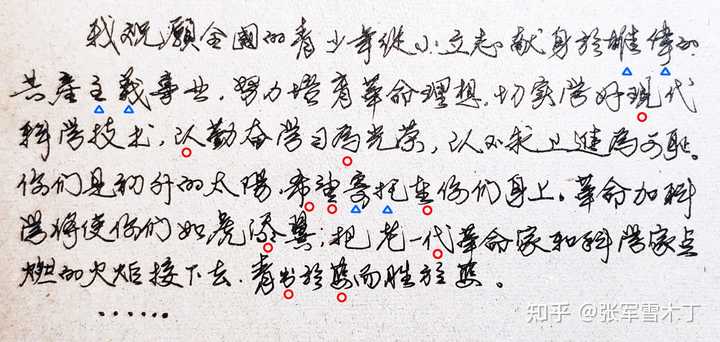 我祝願全國的青少年從小立志献身於雄偉的
共產主義事业，努力培育革命理想，切实学好现代
科学技术，以勤奋学习為光荣，以不求上進為可耻。
你们是初升的太陽，希望寄托在你们身上。革命加科
学将使你们如虎添翼；把老一代革命家和科学家点
燃的火炬接下去，青出於蓝而胜於蓝。
......
知乎 @张军雪木丁